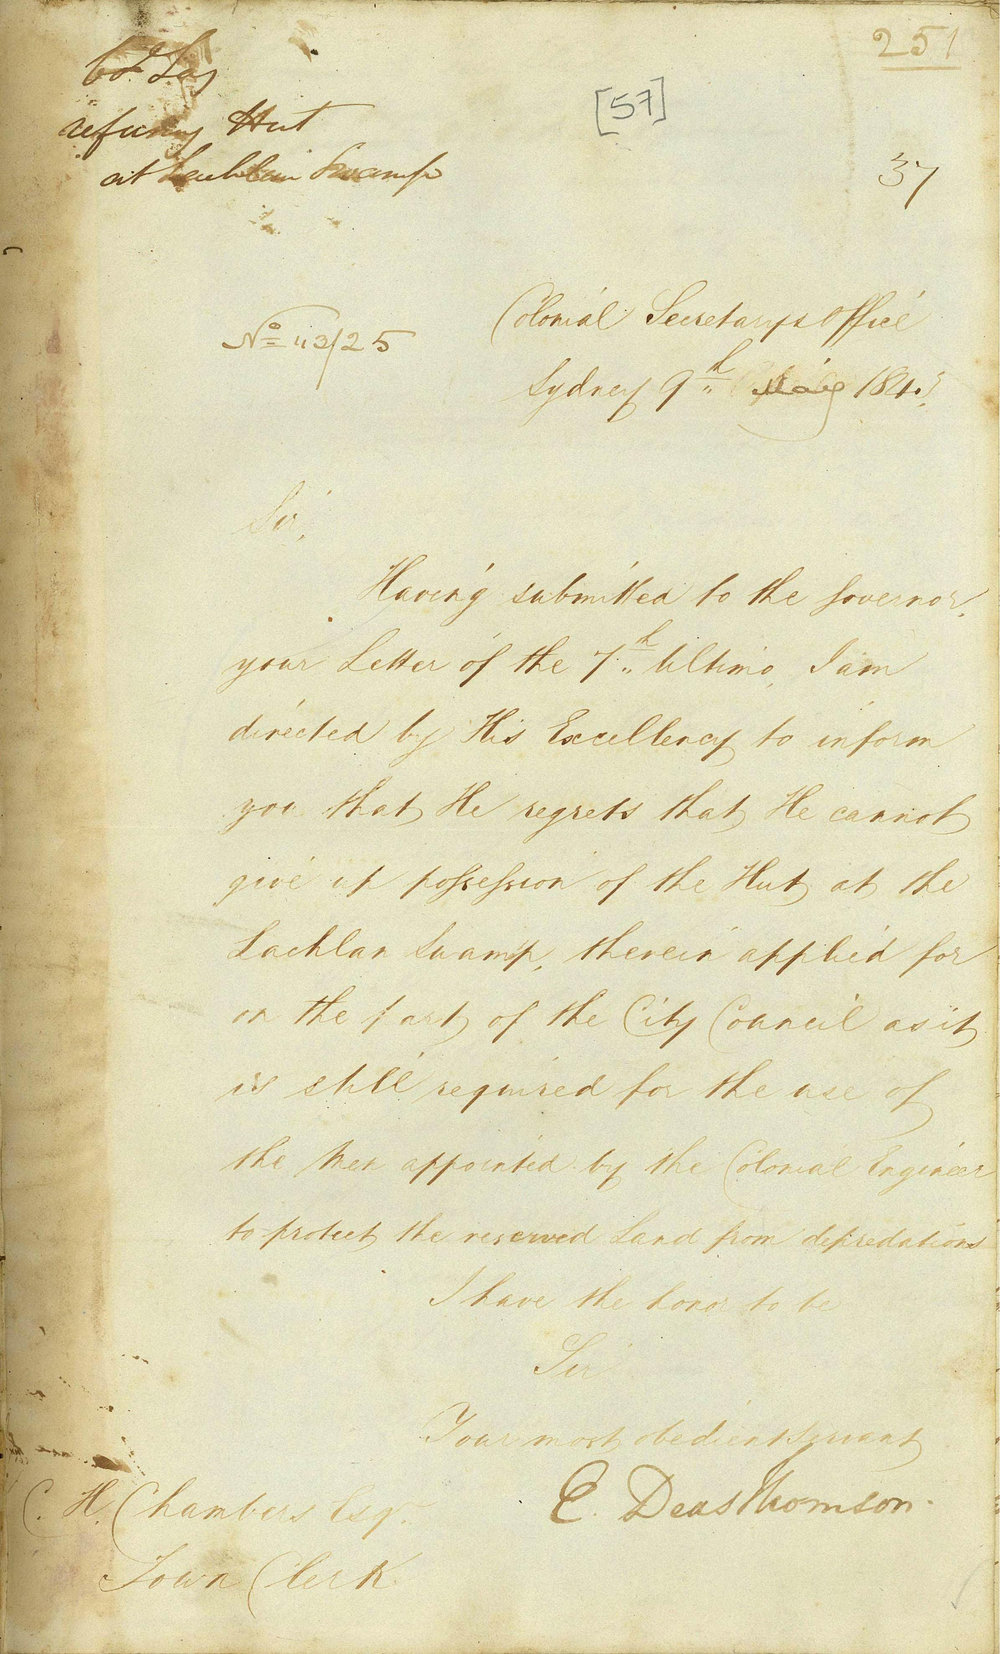 251
Col Sec
refusing Hut
at Lachlan Swamp
[57]
37
No 43/25
Colonial Secretarys Office
Sydney 9th May 1843
Sir,
Having submitted to the Governor,
your Letter of the 7th Ultimo, I am
directed by His Excellency to inform
you that He regrets that He cannot
give up possession of the Hut at the
Lachlan Swamp, therein applied for
on the part of the City Council as it
is still required for the use of
the Men appointed by the Colonial Engineer
to protect the reserved Land from depredations
I have the honor to be
Sir
Your most obedient Servant
E. Deas Thomson.
C. H. Chambers Esqr.
Town Clerk